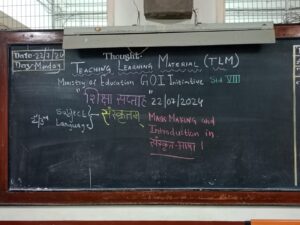 Date 22/7/24
Day Monday
Thought:
TEACHING LEARNING MATERIAL (TLM)
Ministry of Education GOI Iniciative Std VIII
"शिक्षा सप्ताह" 22/07/2024
Subject संस्कृतम्
Language
Mask Making and
Introduction in
संस्कृत-भाषा।